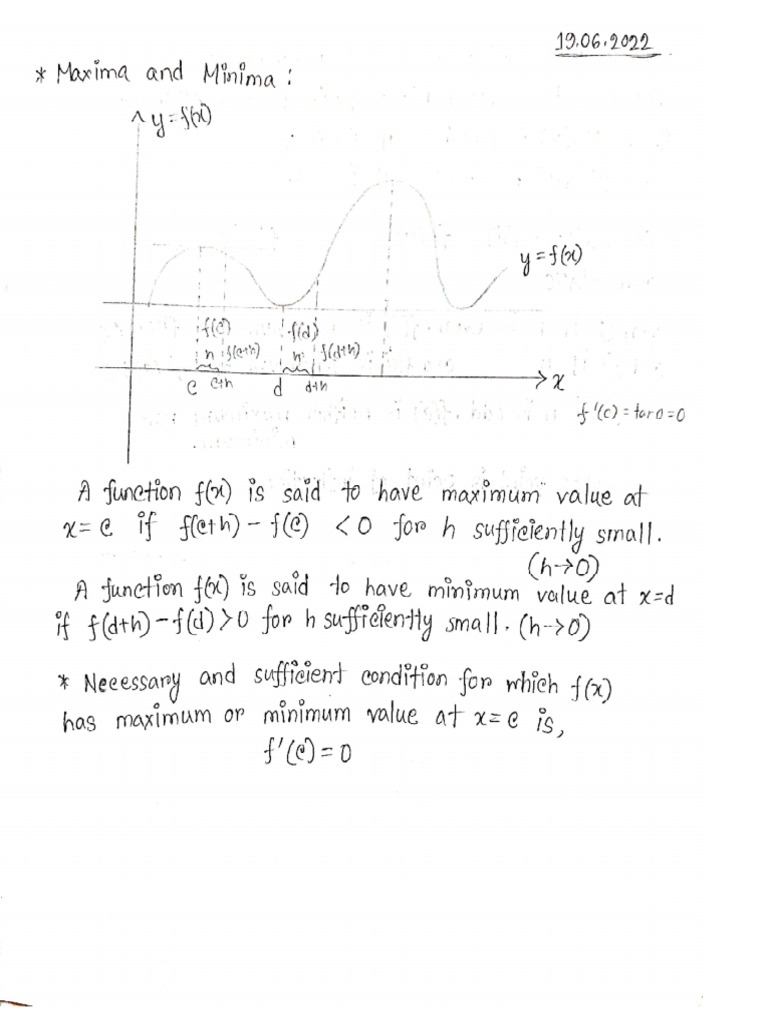 19.06.2022
* Maxima and Minima :
y = f(x)
y = f(x)
f(c)
f(d)
h
f(c+h)
h
f(d+h)
c
c+h
d
d+h
x
f'(c) = tan 0 = 0
A function f(x) is said to have maximum value at
x = c if f(c+h) - f(c) < 0 for h sufficiently small.
(h→0)
A function f(x) is said to have minimum value at x=d
if f(d+h) - f(d) > 0 for h sufficiently small. (h→0)
* Necessary and sufficient condition for which f(x)
has maximum or minimum value at x = c is,
f'(c) = 0